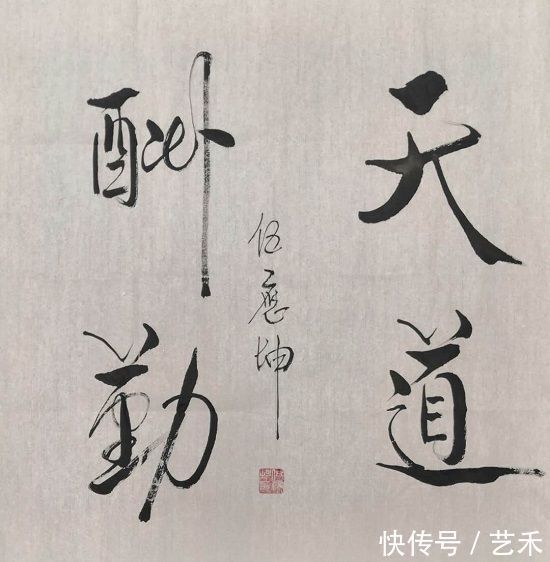 天道
酬勤
伍應坤
快传号 / 艺禾